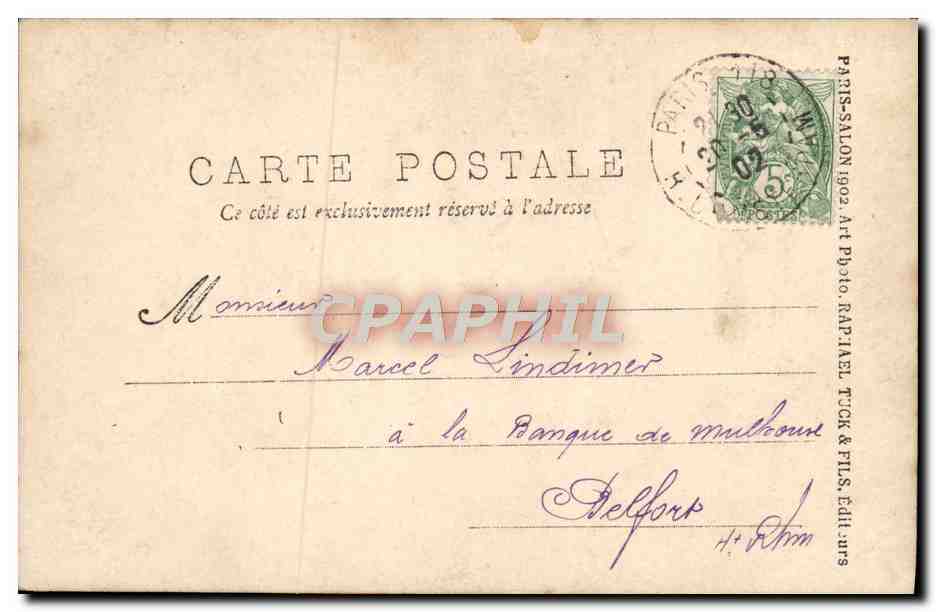 CARTE POSTALE
Ce côté est exclusivement réservé à l'adresse
PARIS 118
30
02
5c
POSTES
Monsieur
CPAPHIL
Marcel Lindimer
à la Banque de Mulhouse
Belfort
Ht Rhin
PARIS-SALON 1902. Art Photo. RAPHAEL TUCK & FILS, Éditeurs